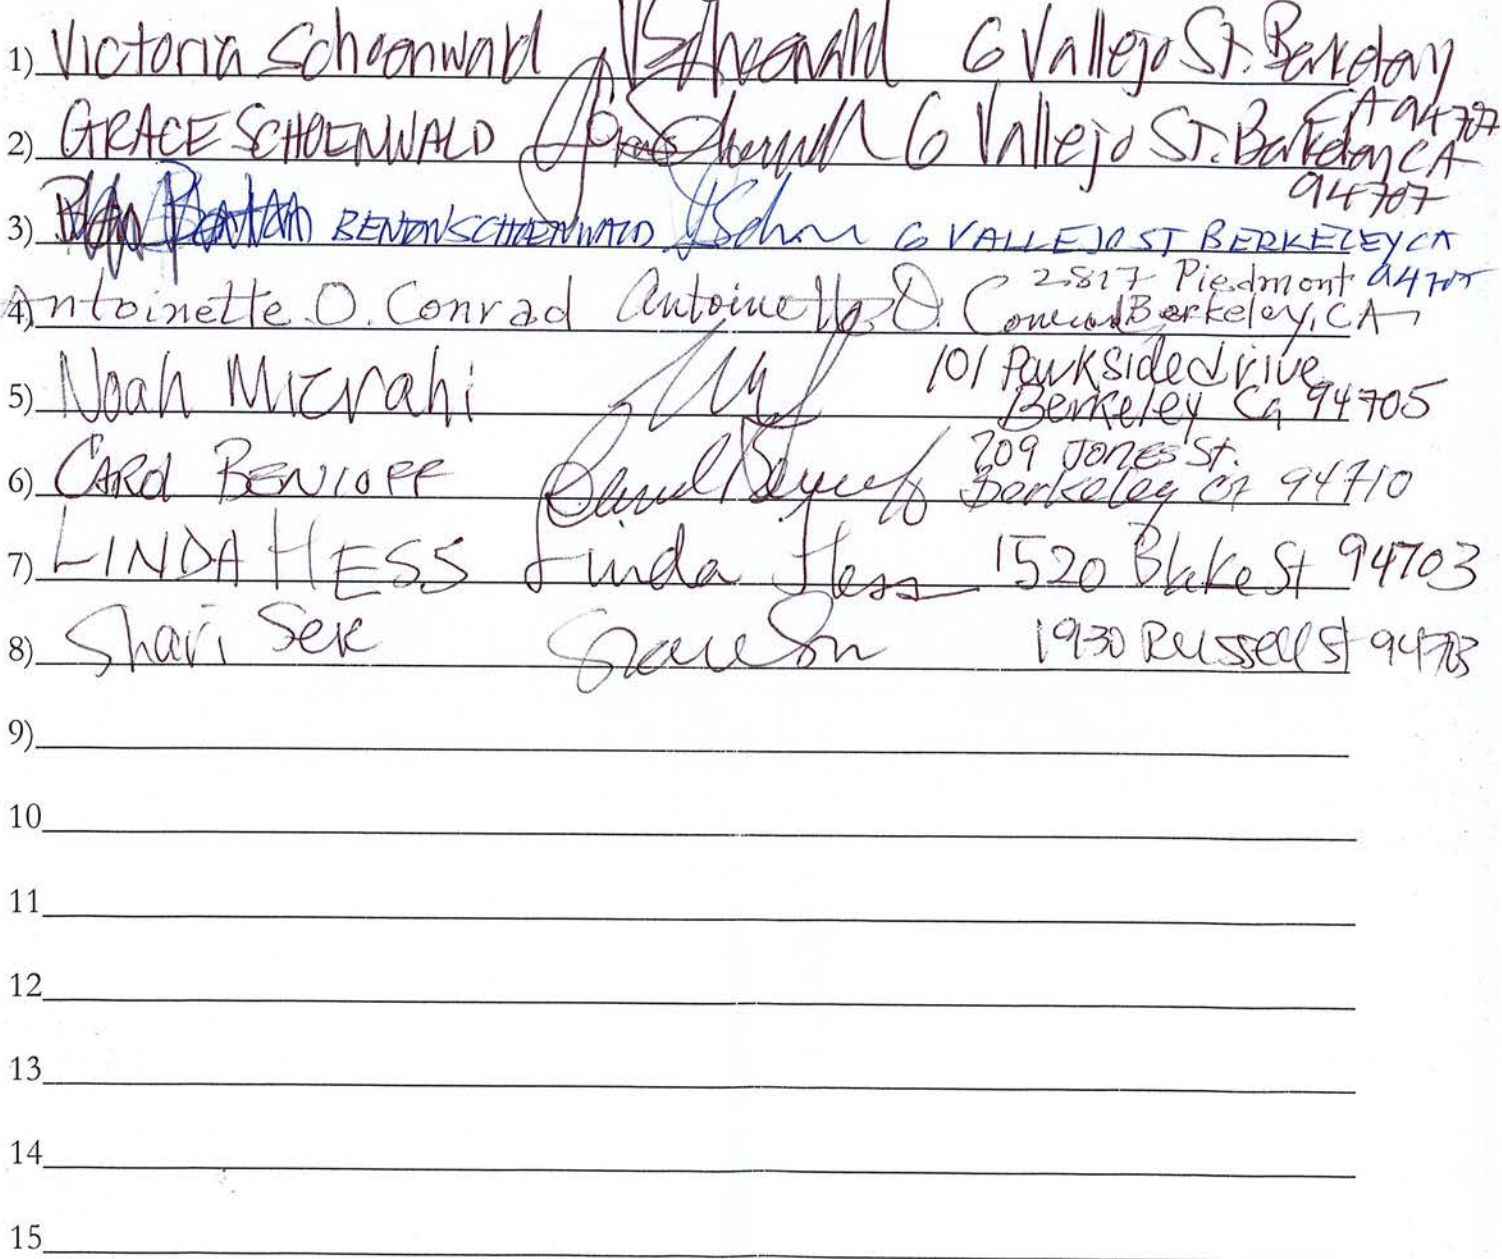 1) Victoria Schoenwald VSchoenwald 6 Vallejo St. Berkeley
CA 94707
2) GRACE SCHOENWALD Grace 6 Vallejo St. Berkeley CA
94707
3) BENTON SCHOENWALD 6 VALLEJO ST BERKELEY CA
4) Antoinette O. Conrad Antoinette O. Conrad 2817 Piedmont
Berkeley, CA
5) Noah Mizrahi 101 Parkside drive
Berkeley Ca 94705
6) CAROL BENIOFF 709 JONES St.
Berkeley CA 94710
7) LINDA HESS Linda Hess 1520 Blake St 94703
8) Shari Ser 1930 Russell St 94703
9)
10
11
12
13
14
15